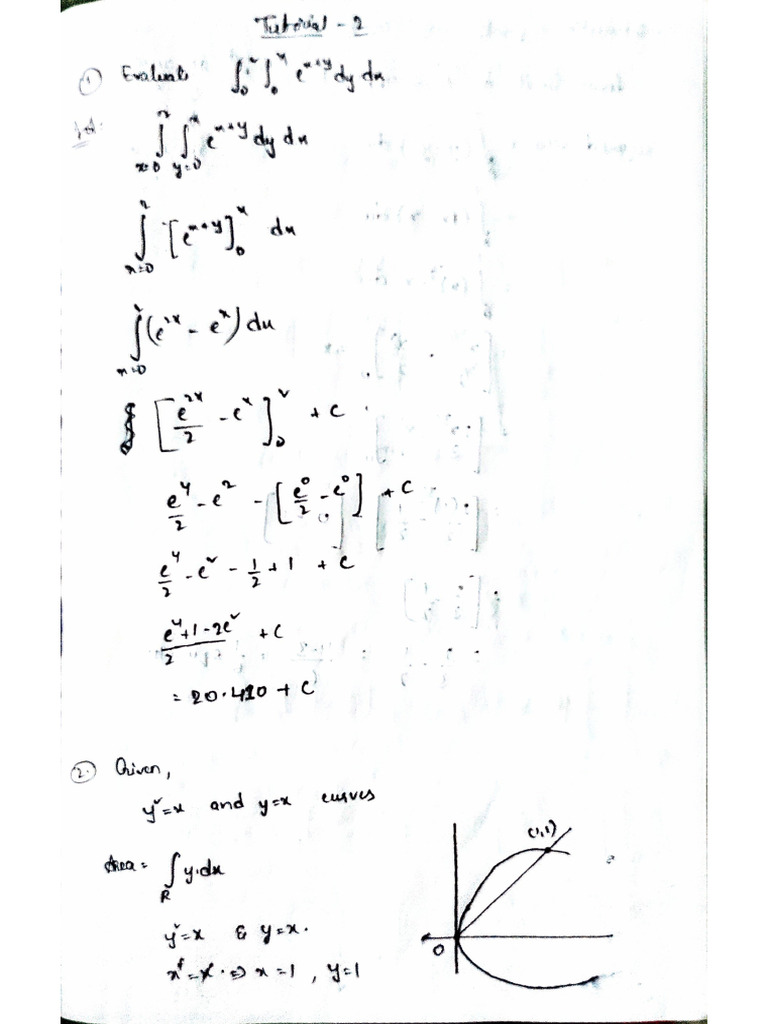 Tutorial - 2
① Evaluate ∫₀² ∫₀ˣ e^(x+y) dy dx
Sol.
∫_{x=0}^{2} ∫_{y=0}^{x} e^(x+y) dy dx
∫_{x=0}^{2} [e^(x+y)]₀ˣ dx
∫_{x=0}^{2} (e^(2x) - e^x) dx
[e^(2x)/2 - e^x]₀² + C
e^4/2 - e^2 - [e^0/2 - e^0] + C
e^4/2 - e^2 - 1/2 + 1 + C
(e^4 + 1 - 2e^2)/2 + C
= 20.410 + C
② Given,
y² = x and y = x curves
(1,1)
Area = ∫_R y.dx
y² = x & y = x.
O
⇒ x = 1, y = 1